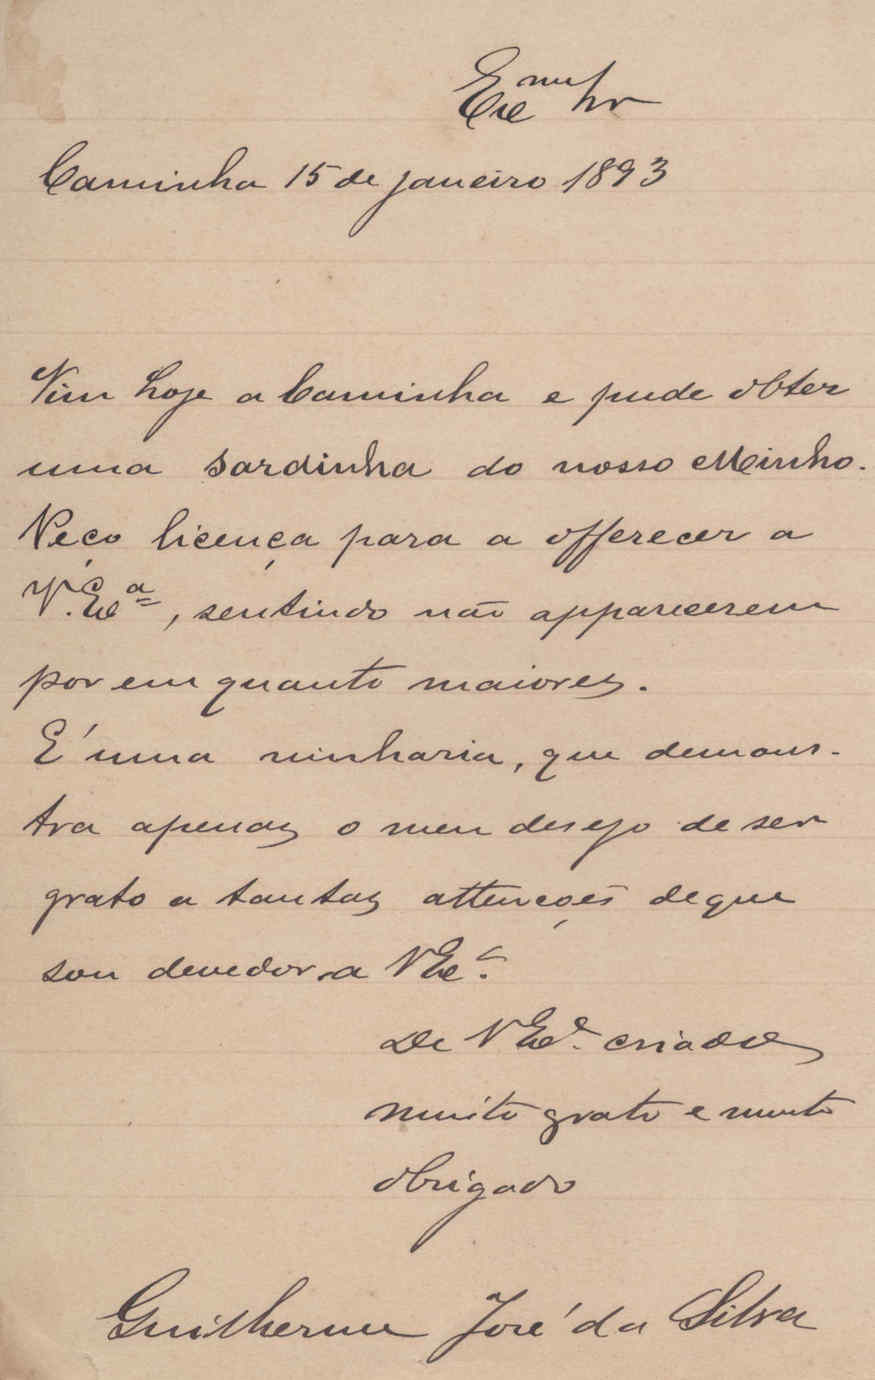 Exc^mo Snr
Caminha 15 de janeiro 1893
Vim hoje a Caminha e pude obter
uma sardinha do nosso Minho.
Peço licença para a offerecer a
V. Ex^a, sentindo não apparecerem
por em quanto maiores.
É uma ninharia, que demons-
tra apenas o meu desejo de ser
grato a tantas attenções de que
sou devedor a V Ex^a.
De V Ex^a. criado
muito grato e muito
obrigado
Guilherme José da Silva